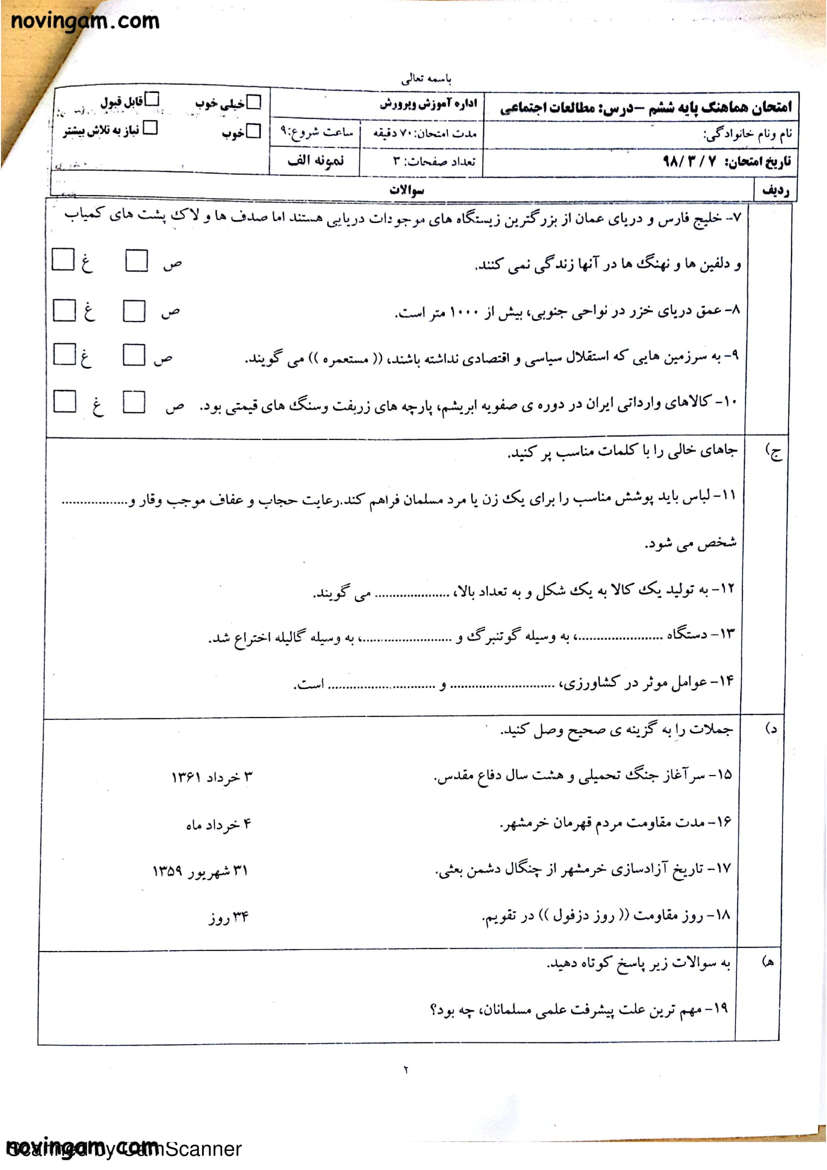 novingam.com
باسمه تعالی
امتحان هماهنگ پایه ششم –درس: مطالعات اجتماعی
اداره آموزش وپرورش
خیلی خوب
قابل قبول
نام ونام خانوادگی:
مدت امتحان: ۷۰ دقیقه
ساعت شروع: ۹
خوب
نیاز به تلاش بیشتر
تاریخ امتحان: ۷ / ۳ / ۹۸
تعداد صفحات: ۳
نمونه الف
ردیف
سوالات
۷- خلیج فارس و دریای عمان از بزرگترین زیستگاه های موجودات دریایی هستند اما صدف ها و لاک پشت های کمیاب
و دلفین ها و نهنگ ها در آنها زندگی نمی کنند. ص غ
۸- عمق دریای خزر در نواحی جنوبی، بیش از ۱۰۰۰ متر است. ص غ
۹- به سرزمین هایی که استقلال سیاسی و اقتصادی نداشته باشند، (( مستعمره )) می گویند. ص غ
۱۰- کالاهای وارداتی ایران در دوره ی صفویه ابریشم، پارچه های زربفت وسنگ های قیمتی بود. ص غ
ج) جاهای خالی را با کلمات مناسب پر کنید.
۱۱- لباس باید پوشش مناسب را برای یک زن یا مرد مسلمان فراهم کند.رعایت حجاب و عفاف موجب وقار و..................
شخص می شود.
۱۲- به تولید یک کالا به یک شکل و به تعداد بالا، ..................... می گویند.
۱۳- دستگاه ........................، به وسیله گوتنبرگ و .........................، به وسیله گالیله اختراع شد.
۱۴- عوامل موثر در کشاورزی، ............................. و .............................. است.
د) جملات را به گزینه ی صحیح وصل کنید.
۱۵- سرآغاز جنگ تحمیلی و هشت سال دفاع مقدس. ۳ خرداد ۱۳۶۱
۱۶- مدت مقاومت مردم قهرمان خرمشهر. ۴ خرداد ماه
۱۷- تاریخ آزادسازی خرمشهر از چنگال دشمن بعثی. ۳۱ شهریور ۱۳۵۹
۱۸- روز مقاومت (( روز دزفول )) در تقویم. ۳۴ روز
ه) به سوالات زیر پاسخ کوتاه دهید.
۱۹- مهم ترین علت پیشرفت علمی مسلمانان، چه بود؟
۲
novingam.com
Scanned by CamScanner